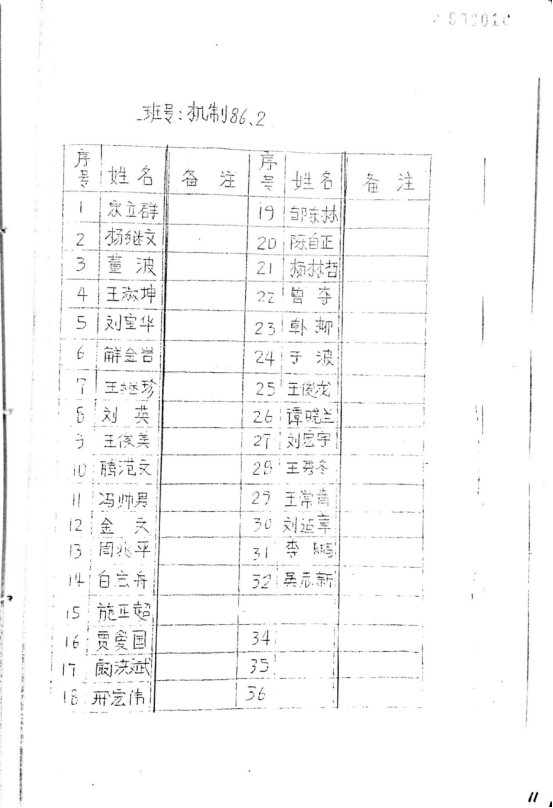 班号:机制86.2
序号 姓名 备注 序号 姓名 备注
1 永立群 19 邹东林
2 杨继文 20 陈自正
3 董波 21 杨林哲
4 王淑坤 22 曾夺
5 刘宝华 23 韩柳
6 解金岩 24 于波
7 王继珍 25 王俊龙
8 刘英 26 谭晓兰
9 王俊美 27 刘宏宇
10 腾范文 28 王秀冬
11 冯帅男 29 王常青
12 金 30 刘
13 周兆平 31 李鹏
14 白宏舟 32 吴志新
15 施正超
16 贾爱国 34
17 阚洪斌 35
18 邢宏伟 36
11